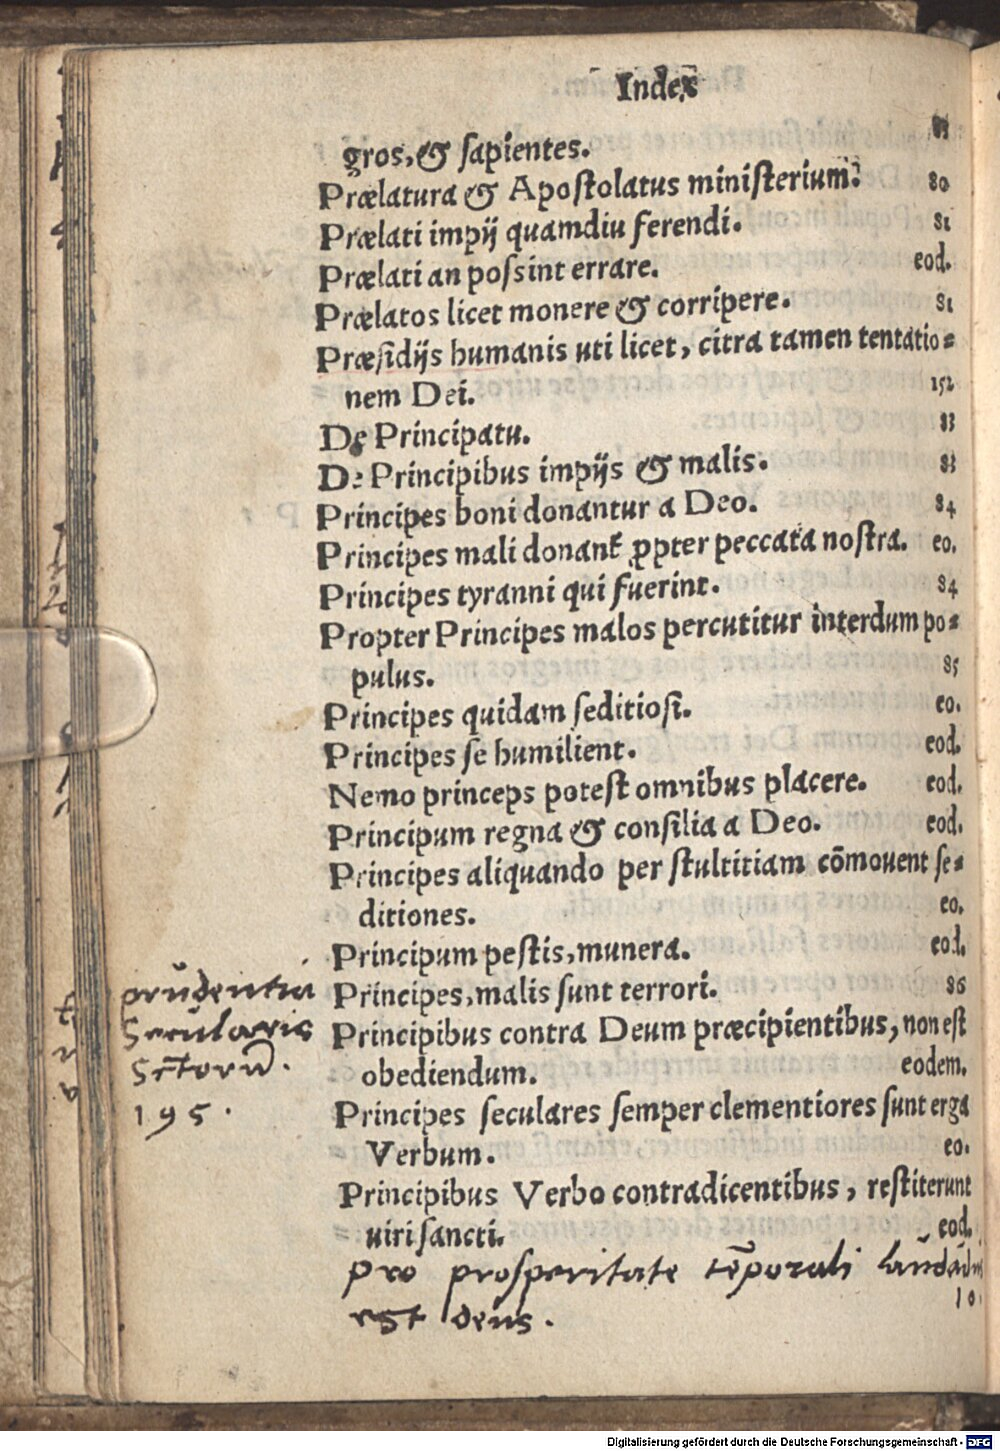 Index
gros, & sapientes.
Prælatura & Apostolatus ministerium. 80
Prælati impij quamdiu ferendi. 81
Prælati an possint errare. eod.
Prælatos licet monere & corripere. 81
Præsidijs humanis uti licet, citra tamen tentatio=
nem Dei. 152
De Principatu. 83
De Principibus impijs & malis. 83
Principes boni donantur a Deo. 84
Principes mali donant᷑ ꝓpter peccata nostra. eo.
Principes tyranni qui fuerint. 84
Propter Principes malos percutitur interdum po=
pulus. 85
Principes quidam seditiosi. eo.
Principes se humilient. eod.
Nemo princeps potest omnibus placere. eod.
Principum regna & consilia a Deo. eod.
Principes aliquando per stultitiam cōmouent se=
ditiones. eo.
Principum pestis, munera. eod.
Principes, malis sunt terrori. 86
Principibus contra Deum præcipientibus, non est
obediendum. eodem.
Principes seculares semper clementiores sunt erga
Verbum. eo.
Principibus Verbo contradicentibus, restiterunt
uiri sancti. eod.
prudentia
Secularis
Sctorū.
195.
pro prosperitate tēporali
est deus.